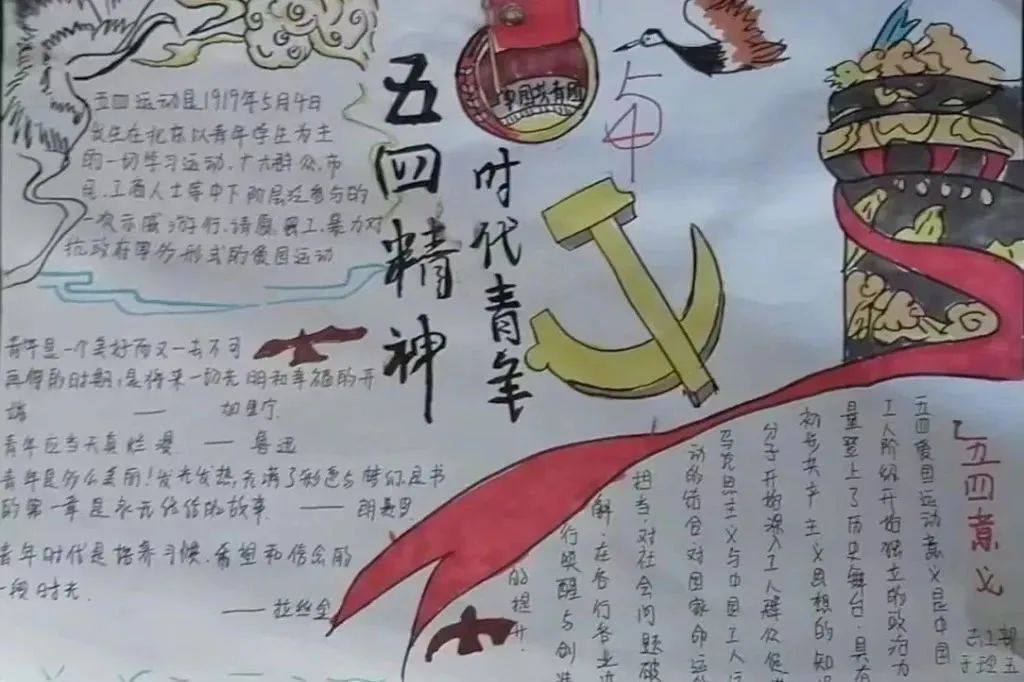 五四精神
时代青年
5
4
五四运动是1919年5月4日
发生在北京以青年学生为主
的一切学习运动,广大群众,市
民,工商人士等中下阶层泛参与的
一次示威游行,请愿,罢工,暴力对
抗政府等多形式的爱国运动
青年是一个美好而又一去不可
再得的时期,是将来一切光明和幸福的开
端 —— 加里宁
青年应当天真烂漫 —— 鲁迅
青年是多么美丽!发光发热,充满了彩色与梦幻,是书
的第一章是永无终结的故事 —— 朗费罗
青年时代是培养习惯,希望和信念的
一段时光
—— 拉丝金
五四意义
五四爱国运动意义是中国
工人阶级开始独立的政治力
量登上了历史舞台,具有
初步共产主义思想的知识
分子开始深入工人群众促进
马克思主义与中国工人运
动的结合对国家命运
担当,对社会问题破
解,在各行各业
行唤醒与创造
的提升